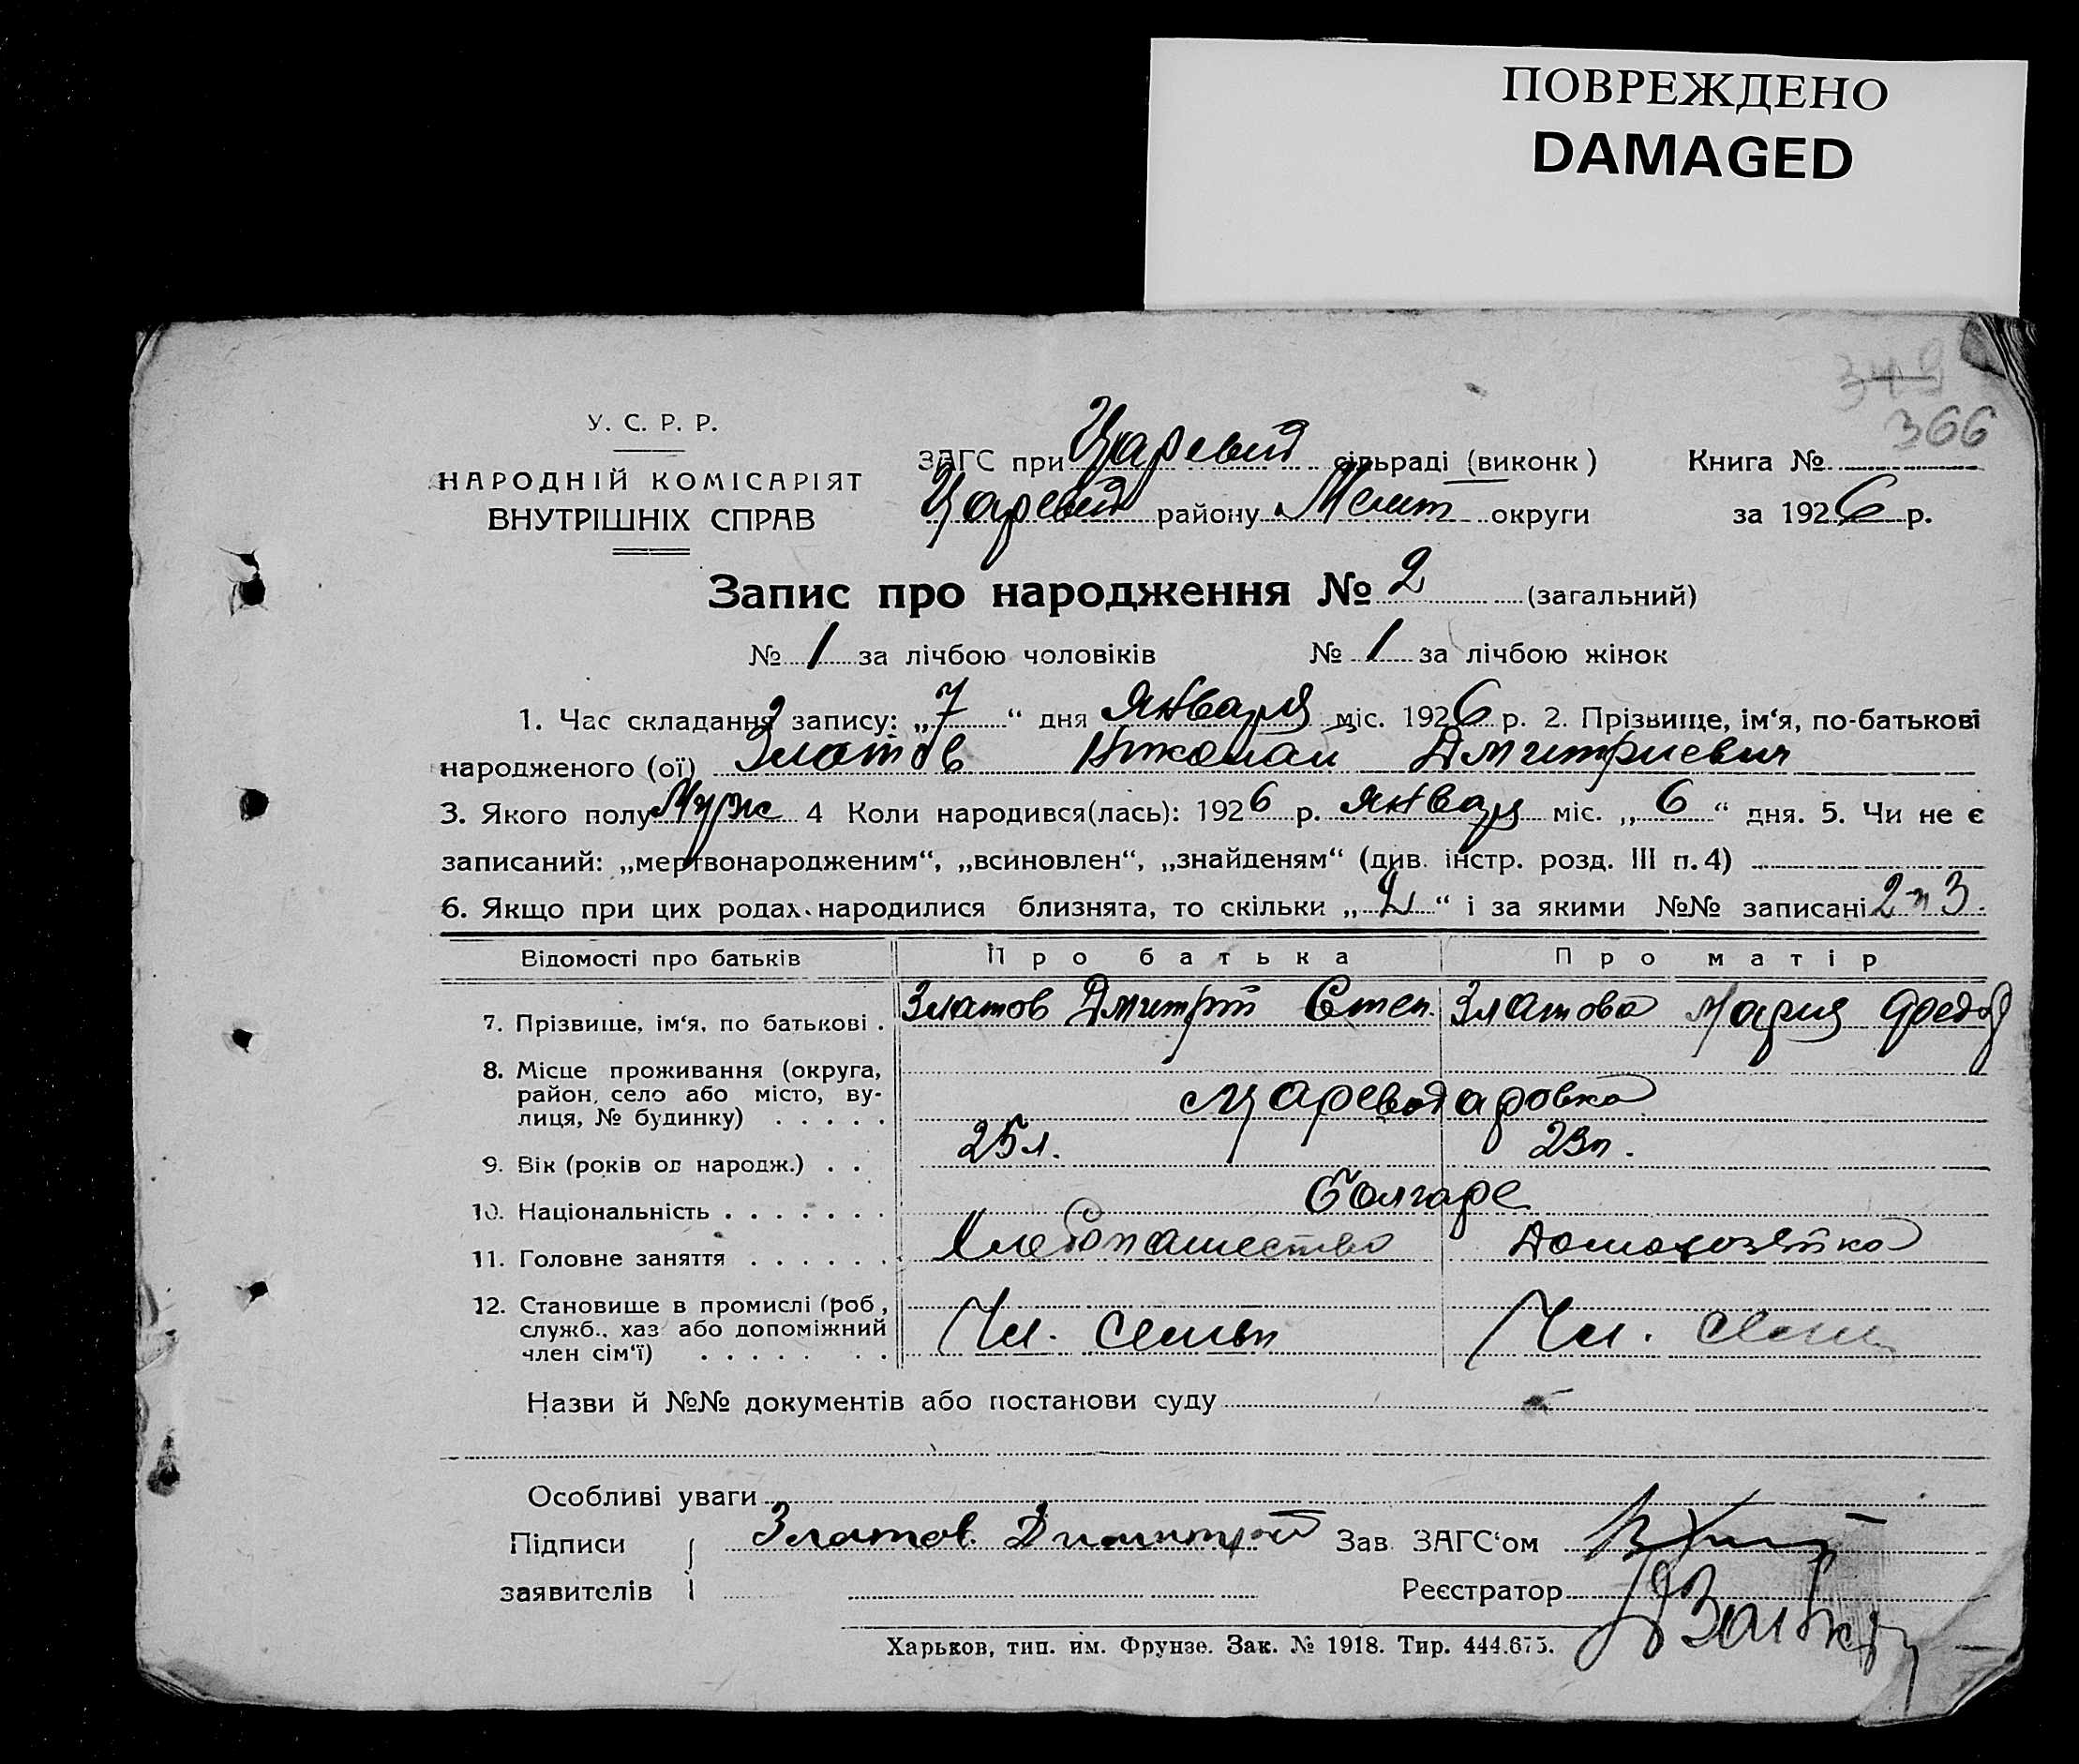 ПОВРЕЖДЕНО
DAMAGED
349
366
У. С. Р. Р.
НАРОДНІЙ КОМІСАРІЯТ
ВНУТРІШНІХ СПРАВ
ЗАГС при Царевод сільраді (виконк)
Книга №
Царевод району Мелит округи
за 1926 р.
Запис про народження № 2 (загальний)
№ 1 за лічбою чоловіків № 1 за лічбою жінок
1. Час складання запису: „7“ дня Января міс. 1926 р. 2. Прізвище, ім‘я, по-батькові
народженого (ої) Златов Николай Дмитриевич
3. Якого полу Муж 4 Коли народився(лась): 1926 р. января міс. „6“ дня. 5. Чи не є
записаний: „мертвонародженим“, „всиновлен“, „знайденям“ (див. інстр. розд. III п. 4)
6. Якщо при цих родах народилися близнята, то скільки „2“ і за якими №№ записані 2 и 3.
Відомості про батьків Про батька Про матір
7. Прізвище, ім‘я, по батькові . Златов Дмитрий Степ. Златова Мария Федор
8. Місце проживання (округа,
район, село або місто, ву-
лиця, № будинку) . . . . . Цареводаровка
9. Вік (років од народж.) . . 25 л. 23 л.
10. Національність . . . . . . . Болгаре
11. Головне заняття . . . . . . Хлебопашество Домохозяйка
12. Становище в промислі (роб,
служб., хаз або допоміжний
член сім‘ї) . . . . . . . Чл. семьи Чл. семи
Назви й №№ документів або постанови суду
Особливі уваги
Підписи Златов. Димитрий Зав. ЗАГС‘ом
заявителів Реєстратор
Харьков, тип. им. Фрунзе. Зак. № 1918. Тир. 444.675.